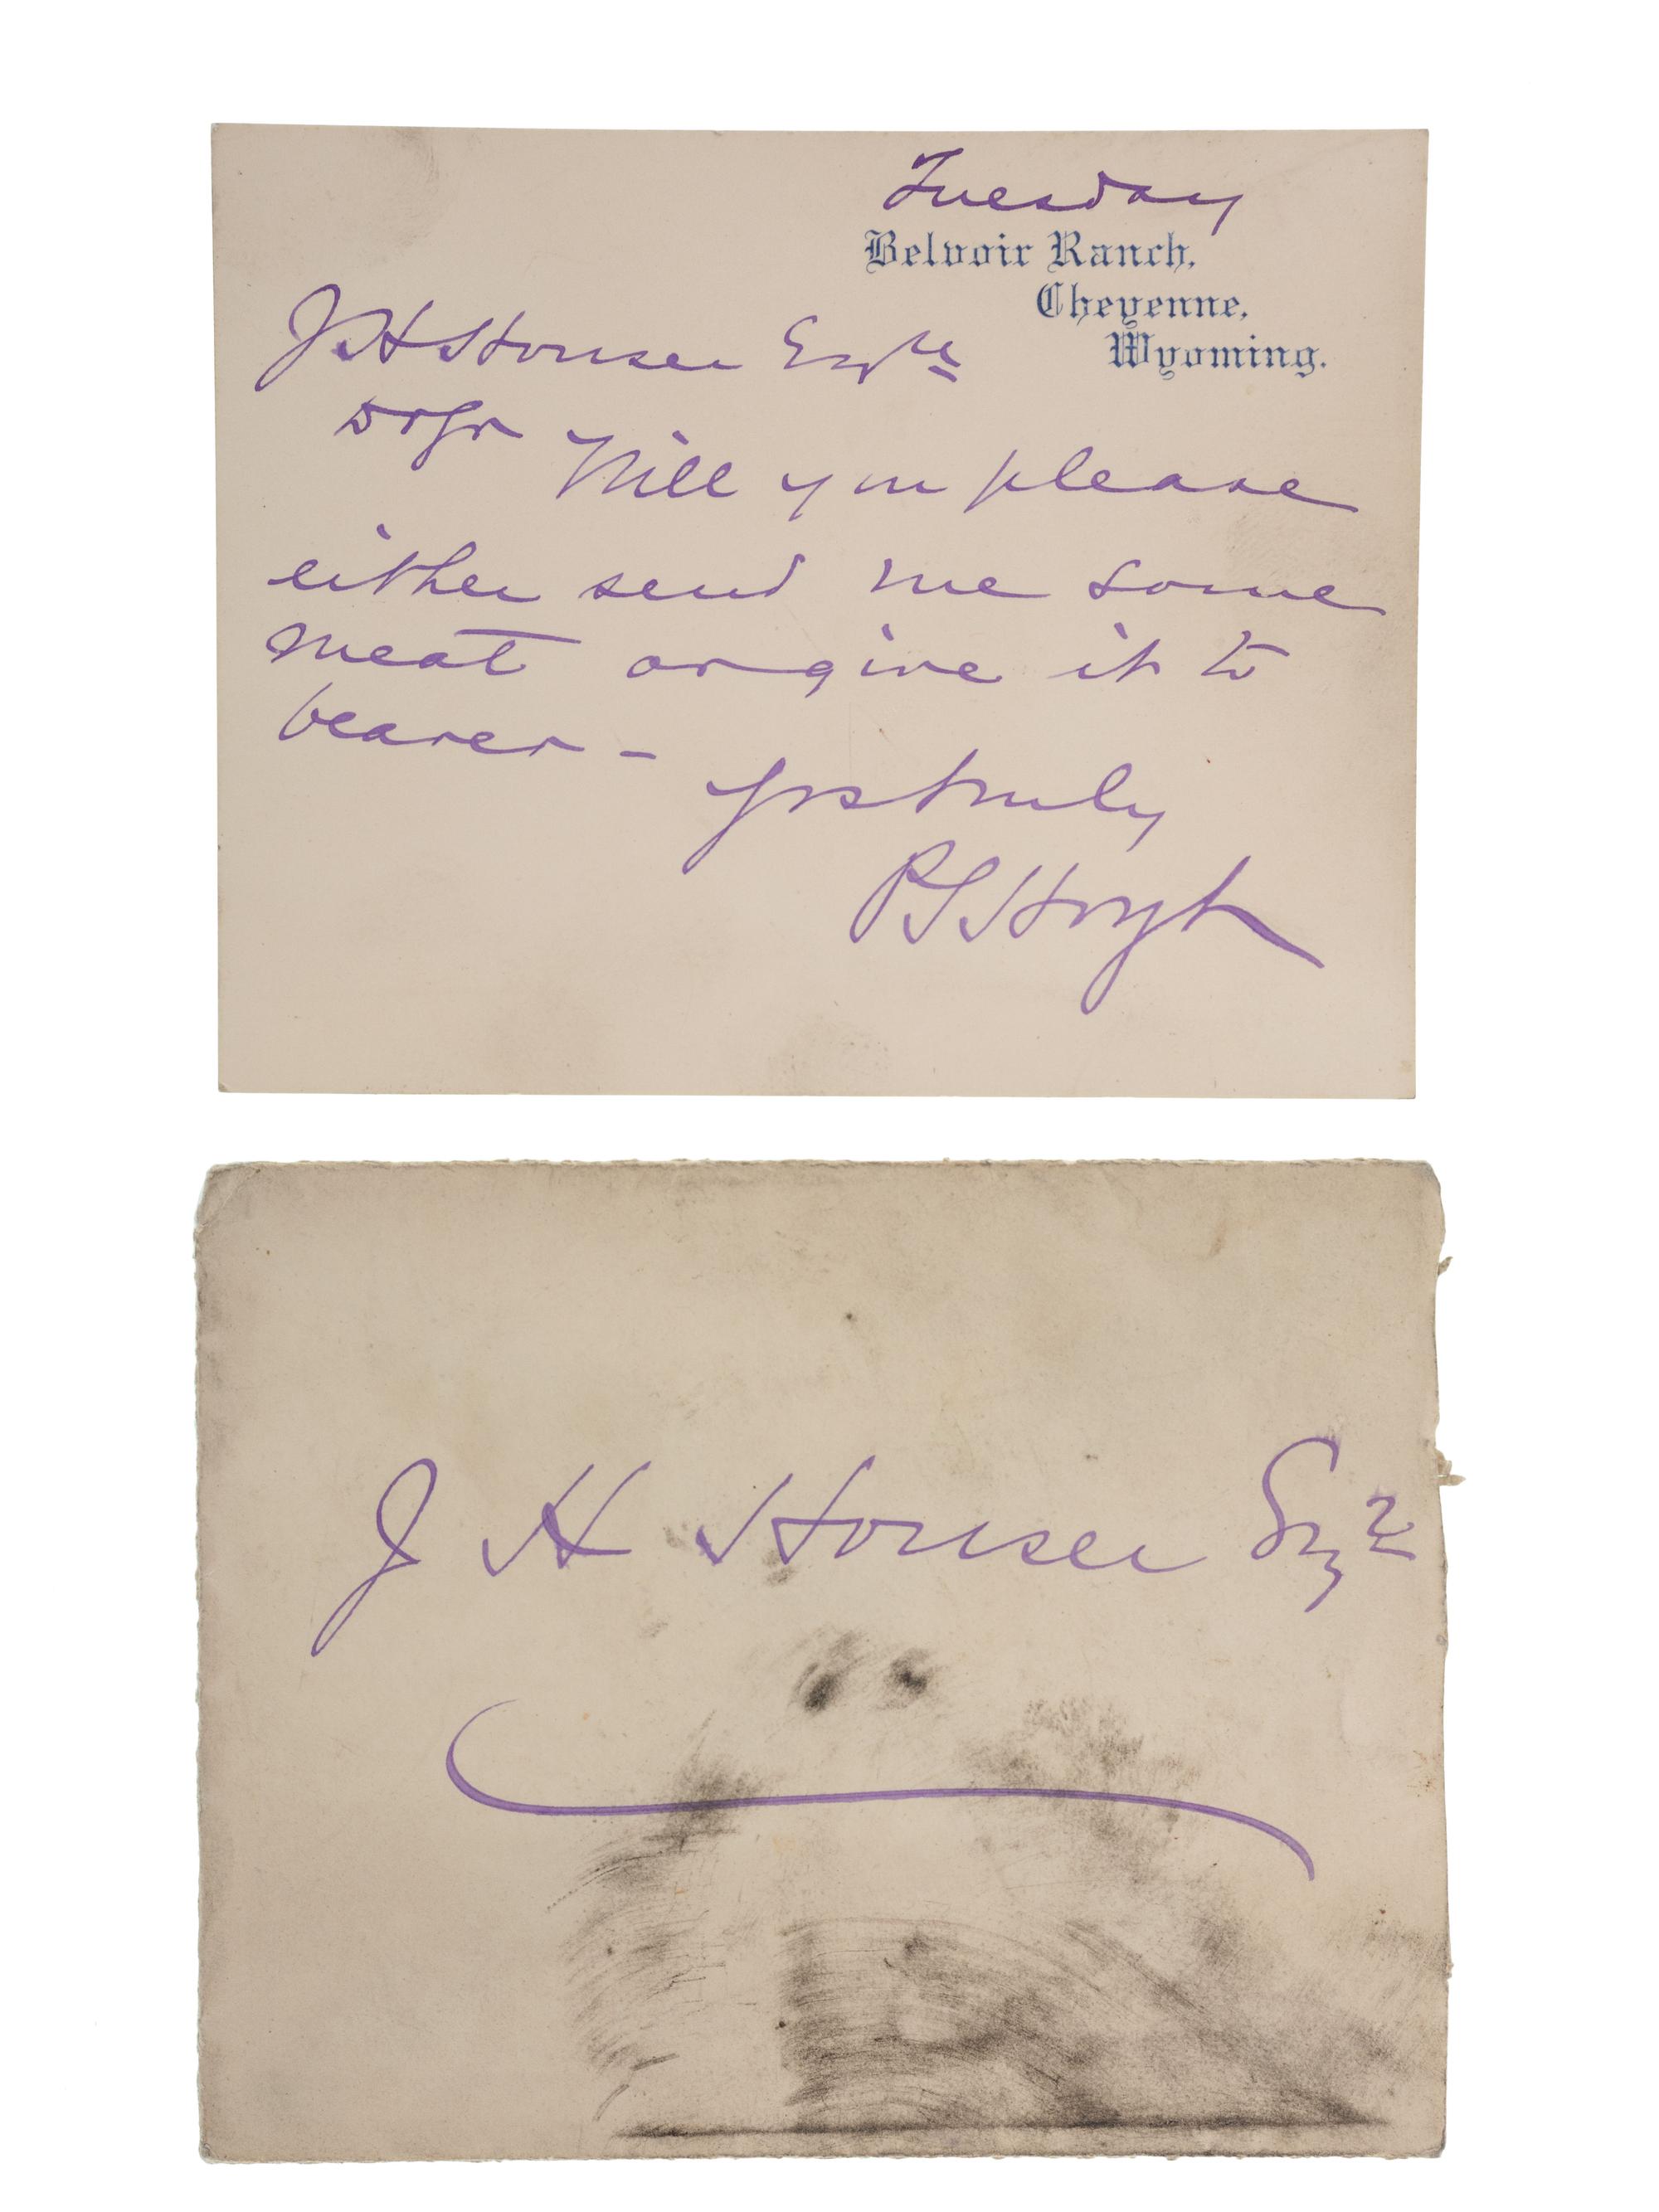 Tuesday
Belvoir Ranch,
Cheyenne,
Wyoming.
J H Houser Esqre
D Sr
Will you please
either send me some
meat or give it to
bearer -
Yrs truly
P S Hoyt
J H Houser Esqr